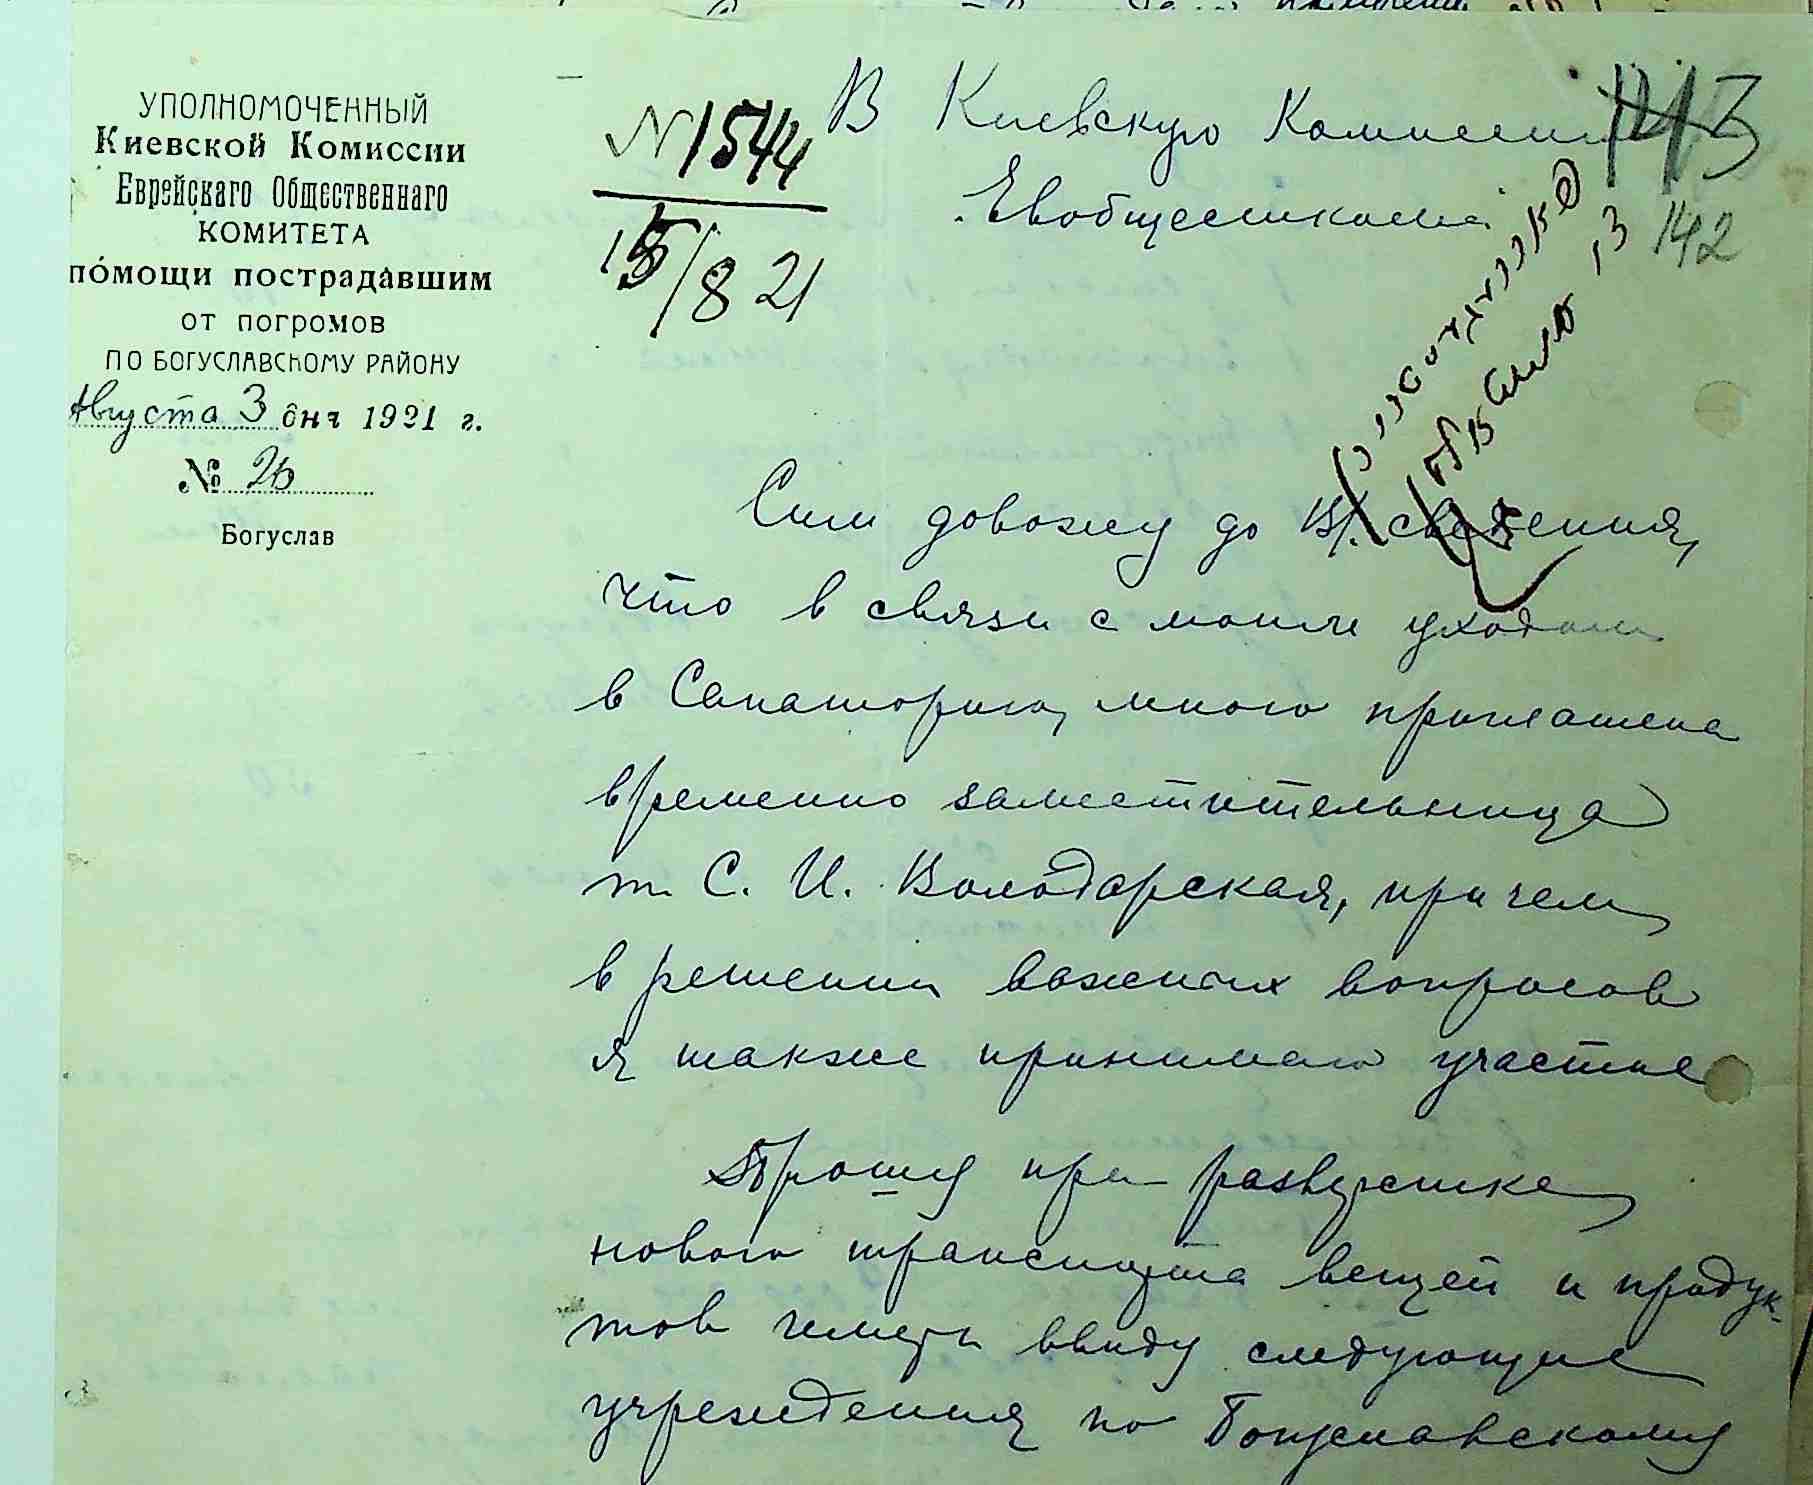 УПОЛНОМОЧЕННЫЙ
Киевской Комиссии
Еврейскаго Общественнаго
КОМИТЕТА
помощи пострадавшим
от погромов
ПО БОГУСЛАВСКОМУ РАЙОНУ
Августа 3 дня 1921 г.
№ 26
Богуслав
N 1544
15/8 21
В Киевскую Комиссию
Евобщесткома
143
142
Сим довожу до В/. сведения,
что в связи с моим уходом
в Санаторию, мною приглашена
временно заместительница
т. С. И. Володарская, причем
в решении важных вопросов
я также принимаю участие
Прошу при разверстке
нового транспорта вещей и продук-
тов иметь ввиду следующие
учреждения по Богуславскому